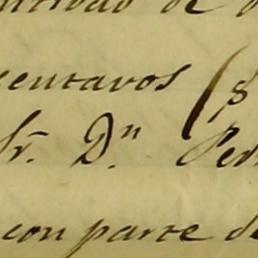 de
centavos ($
Sr. Dn. Ped
con parte de